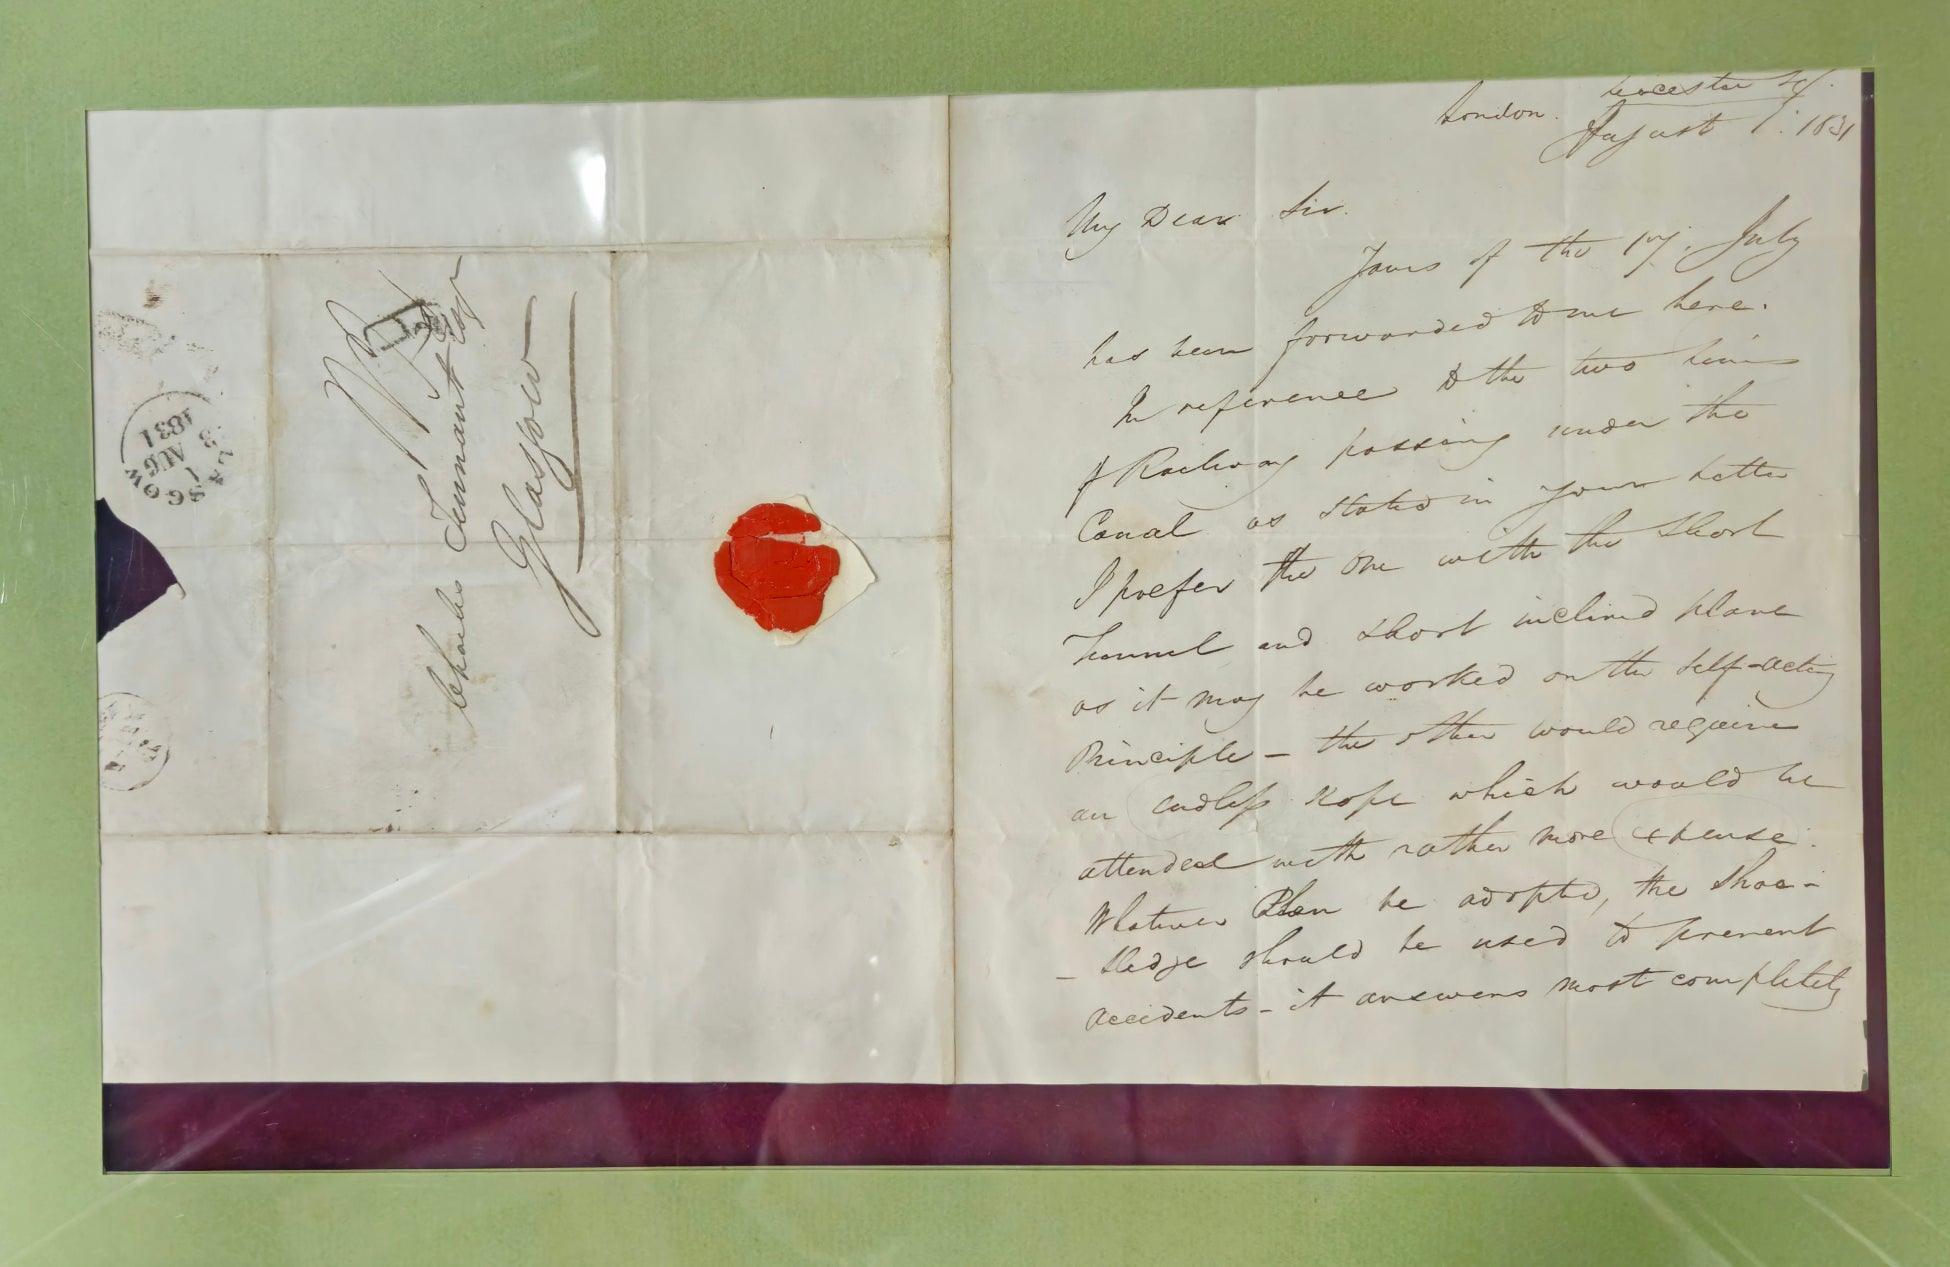 Charles Tennant Esqr
Glasgow
GLASGOW
1 AUG 3
1831
Leicester Sq.
London. August 1. 1831
My Dear Sir.
Yours of the 17. July
has been forwarded to me here.
In reference to the two lines
of Railway passing under the
Canal as stated in your letter
I prefer the one with the short
Tunnel and short inclined plane
as it may be worked on the self-acting
Principle - the other would require
an endless rope which would be
attended with rather more expense.
Whatever Plan be adopted, the Shoe-
- sledge should be used to prevent
accidents - it answers most completely